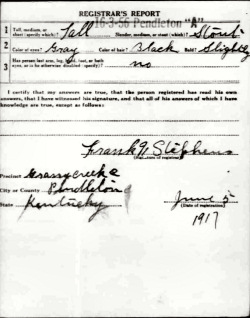 REGISTRAR'S REPORT
16-3-56 Pendleton "A"
1 Tall, medium, or short (specify which)? Tall Slender, medium, or stout (which)? Stout
2 Color of eyes? Gray Color of hair? Black Bald? Slightly
3 Has person lost arm, leg, hand, foot, or both eyes, or is he otherwise disabled (specify)? no
I certify that my answers are true, that the person registered has read his own answers, that I have witnessed his signature, and that all of his answers of which I have knowledge are true, except as follows:
Frank Stephens
(Signature of registrar)
Precinct Grassy Creek
City or County Pendleton
State Kentucky
June 5
(Date of registration)
1917